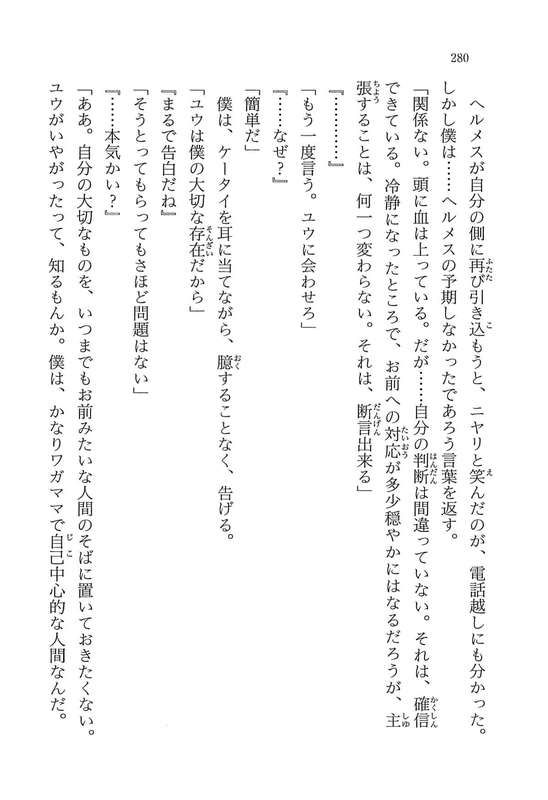 280
ヘルメスが自分の側に再び引き込もうと、ニヤリと笑んだのが、電話越しにも分かった。
しかし僕は……ヘルメスの予期しなかったであろう言葉を返す。
「関係ない。頭に血は上っている。だが……自分の判断は間違っていない。それは、確信
できている。冷静になったところで、お前への対応が多少穏やかにはなるだろうが、主
張することは、何一つ変わらない。それは、断言出来る」
『…………』
「もう一度言う。ユウに会わせろ」
『……なぜ？』
「簡単だ」
僕は、ケータイを耳に当てながら、臆することなく、告げる。
「ユウは僕の大切な存在だから」
『まるで告白だね』
「そうとってもらってもさほど問題はない」
『……本気かい？』
「ああ。自分の大切なものを、いつまでもお前みたいな人間のそばに置いておきたくない。
ユウがいやがったって、知るもんか。僕は、かなりワガママで自己中心的な人間なんだ。